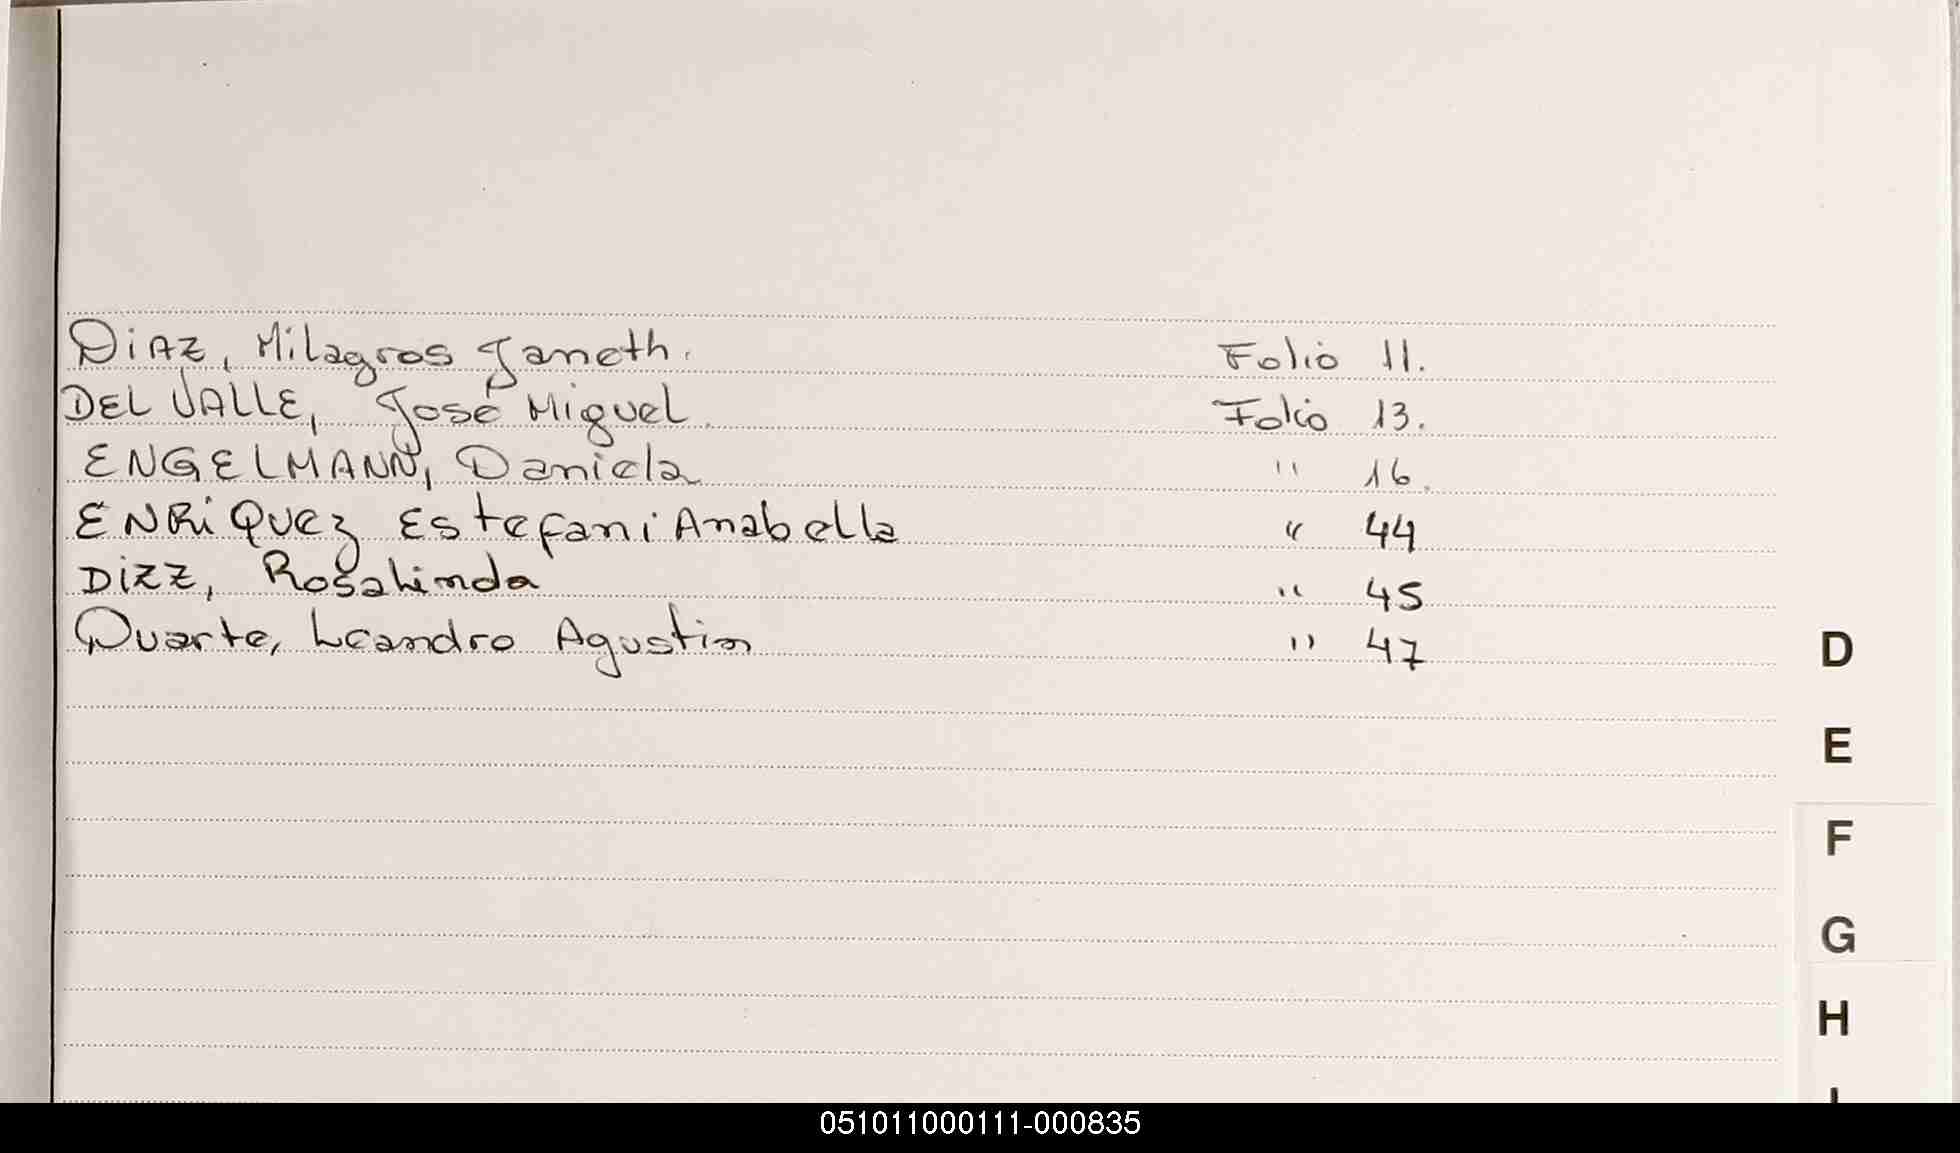 DiAZ, Milagros Janeth. Folio 11.
DEL VALLE, José Miguel. Folio 13.
ENGELMANN, Daniela " 16.
ENRiQuez EstefaniAnabella " 44
DIZZ, Rosalinda " 45
Duarte, Leandro Agustin " 47
D
E
F
G
H
I
051011000111-000835